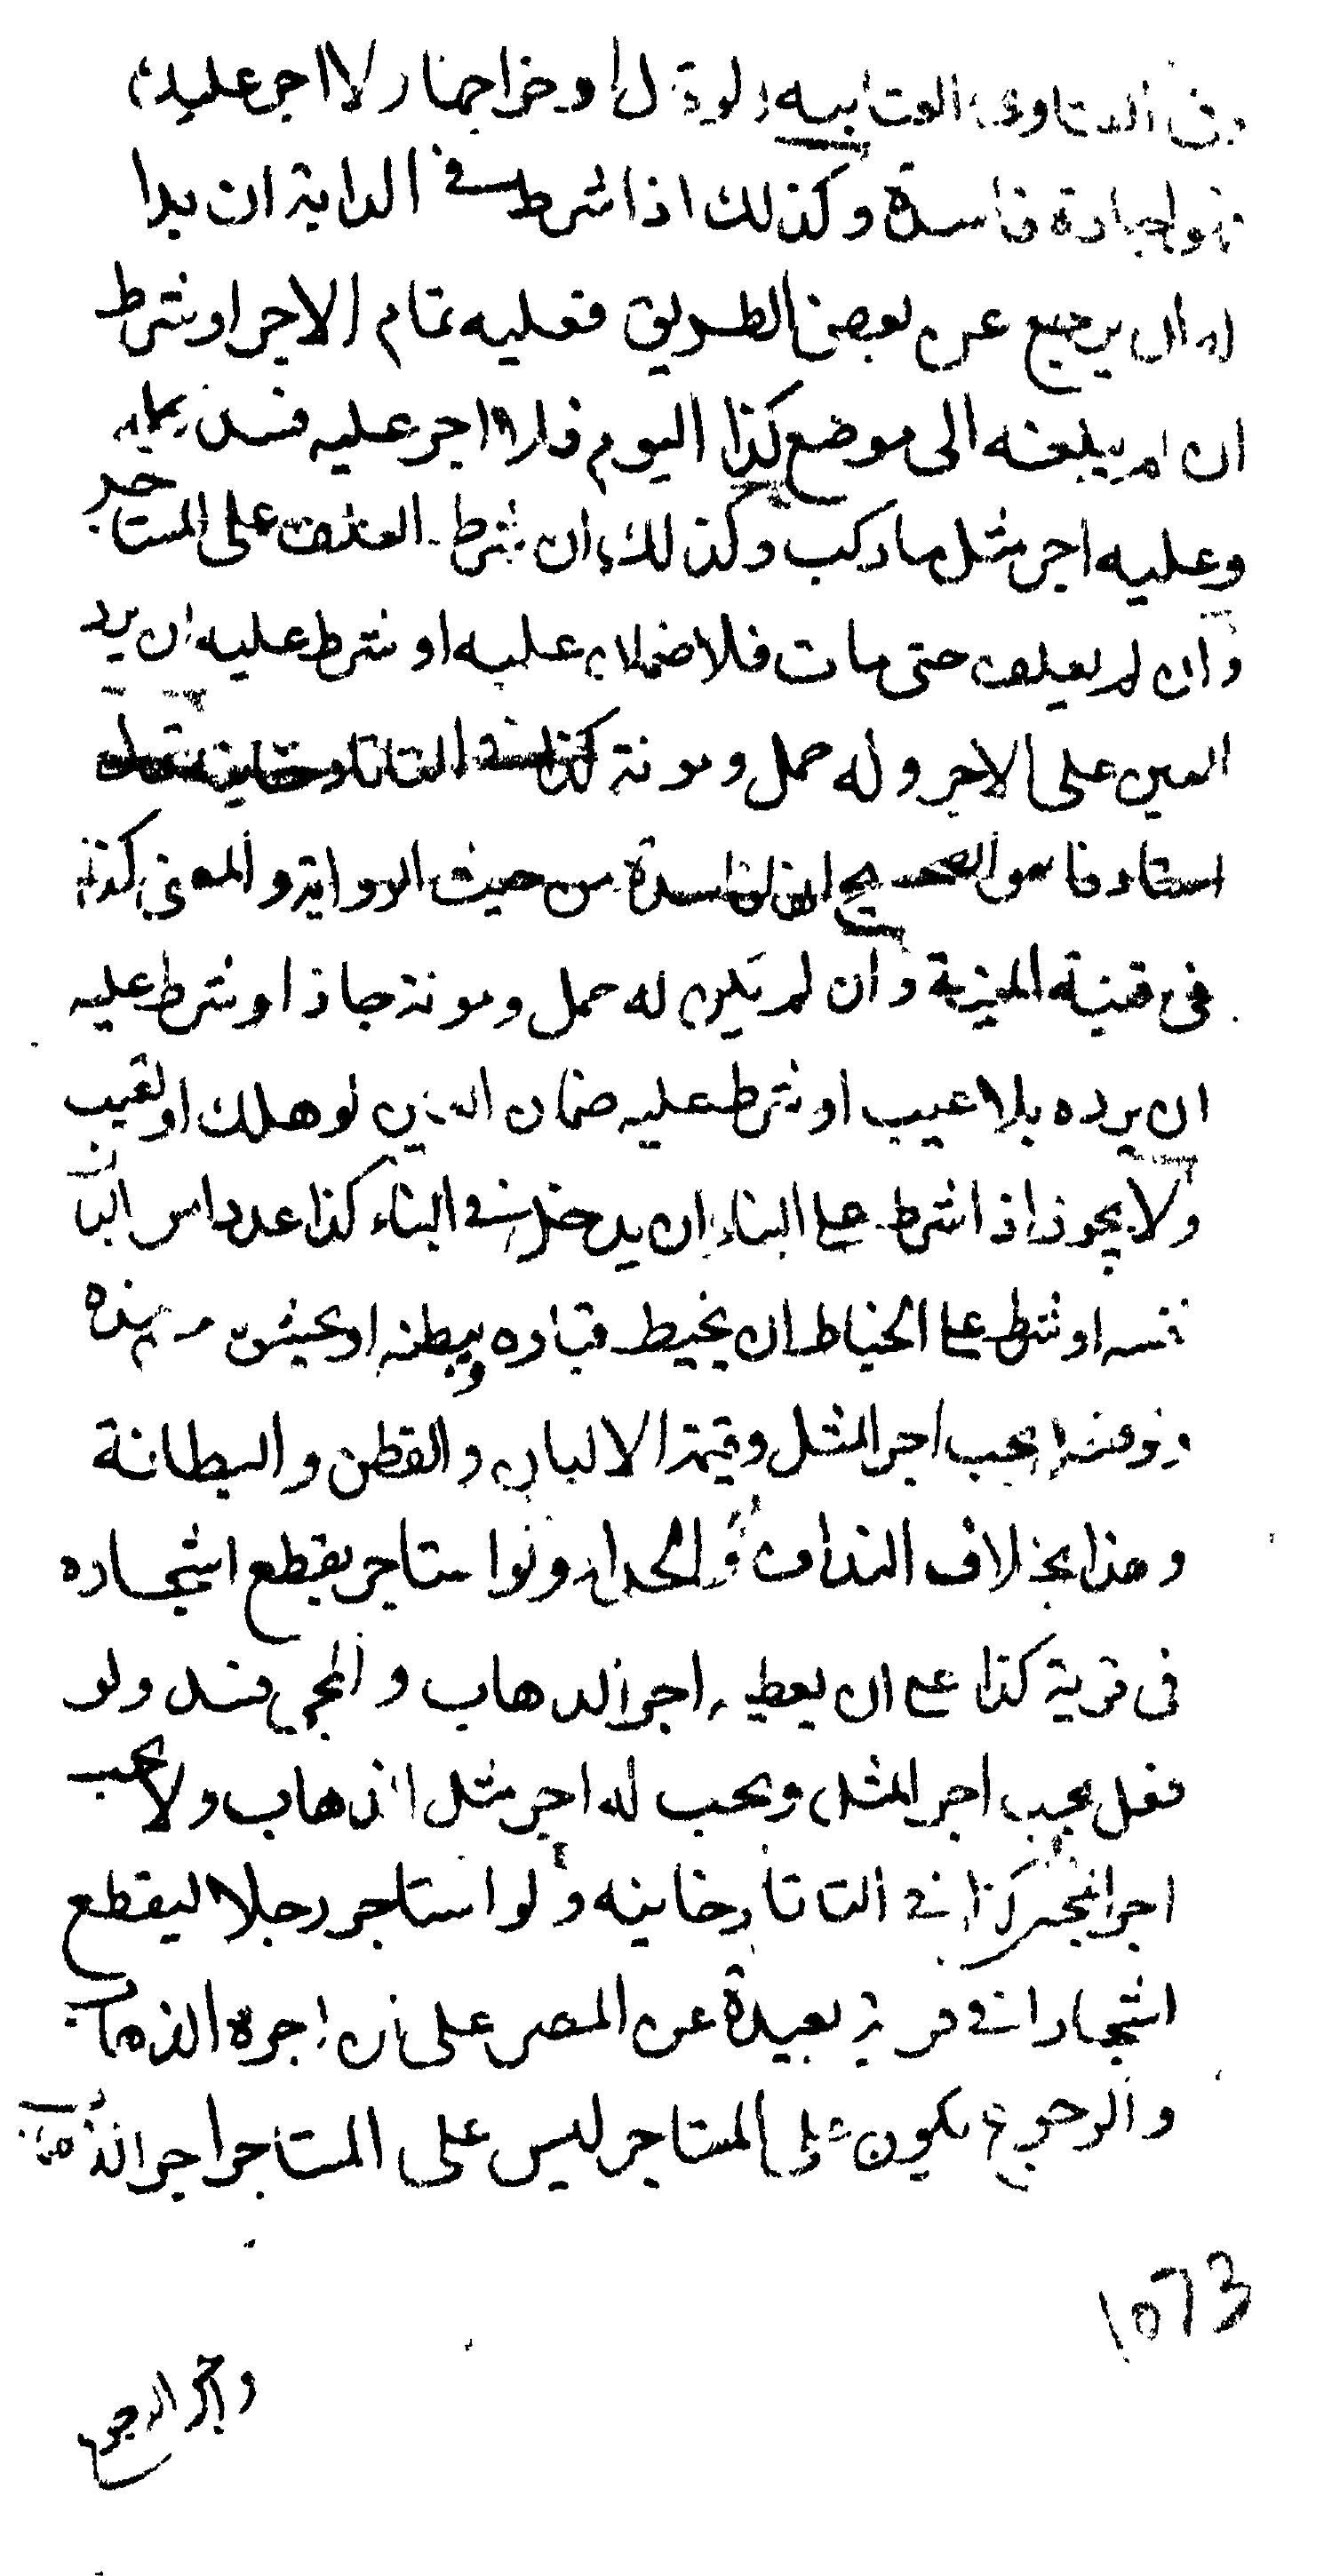 الفتاوى العتابيه ولو قال او خرا جمار لا اجر عليك
فهو اجارة فاسدة وكذلك اذا شرط في الدابة ان بدا
له ان يرجع عن بعض الطريق فعليه تمام الاجر او شرط
ان لم يبلغه الى موضع كذا اليوم فلا اجر عليه فسد
وعليه اجر مثل ما ركب وكذلك ان شرط العلف على المستاجر
وان لم يعلف حتى مات فلا ضمان عليه او شرط عليه ان يرد
العين على الاجر وله حمل ومونة كذا في التاتارخانيه
استاد فا هو الصحيح انها فاسدة من حيث الرواية والمعنى كذا
في قنية المنية وان لم يكن له حمل ومونة جاز او شرط عليه
ان يرده بلا عيب او شرط عليه ضمان العين لو هلك او تعيب
ولا يجوز اذا شرط على البناء ان يدخل في البناء كذا عددا من البان
نفسه او شرط على الخياط ان يخيط قباده ويبطنه او يحيشى من هذه
وفي هذا يجب اجر المثل وقيمة الالبان والقطن والبطانة
وهذا بخلاف النداف والحداد ولو استاجر بقطع اشجاره
في قرية كذا على ان يعطيه اجر الدهاب والمجي فسد ولو
فعل يجب اجر المثل ويجب له اجر مثل الذهاب ولا يجب
اجر المجي كذا في التاتارخانيه ولو استاجر رجلا ليقطع
اشجارا في قرية بعيدة عن المصر على ان اجرة الذهاب
والرجوع يكون على المستاجر ليس على المستاجر اجر الذهاب
واجر الرجوع